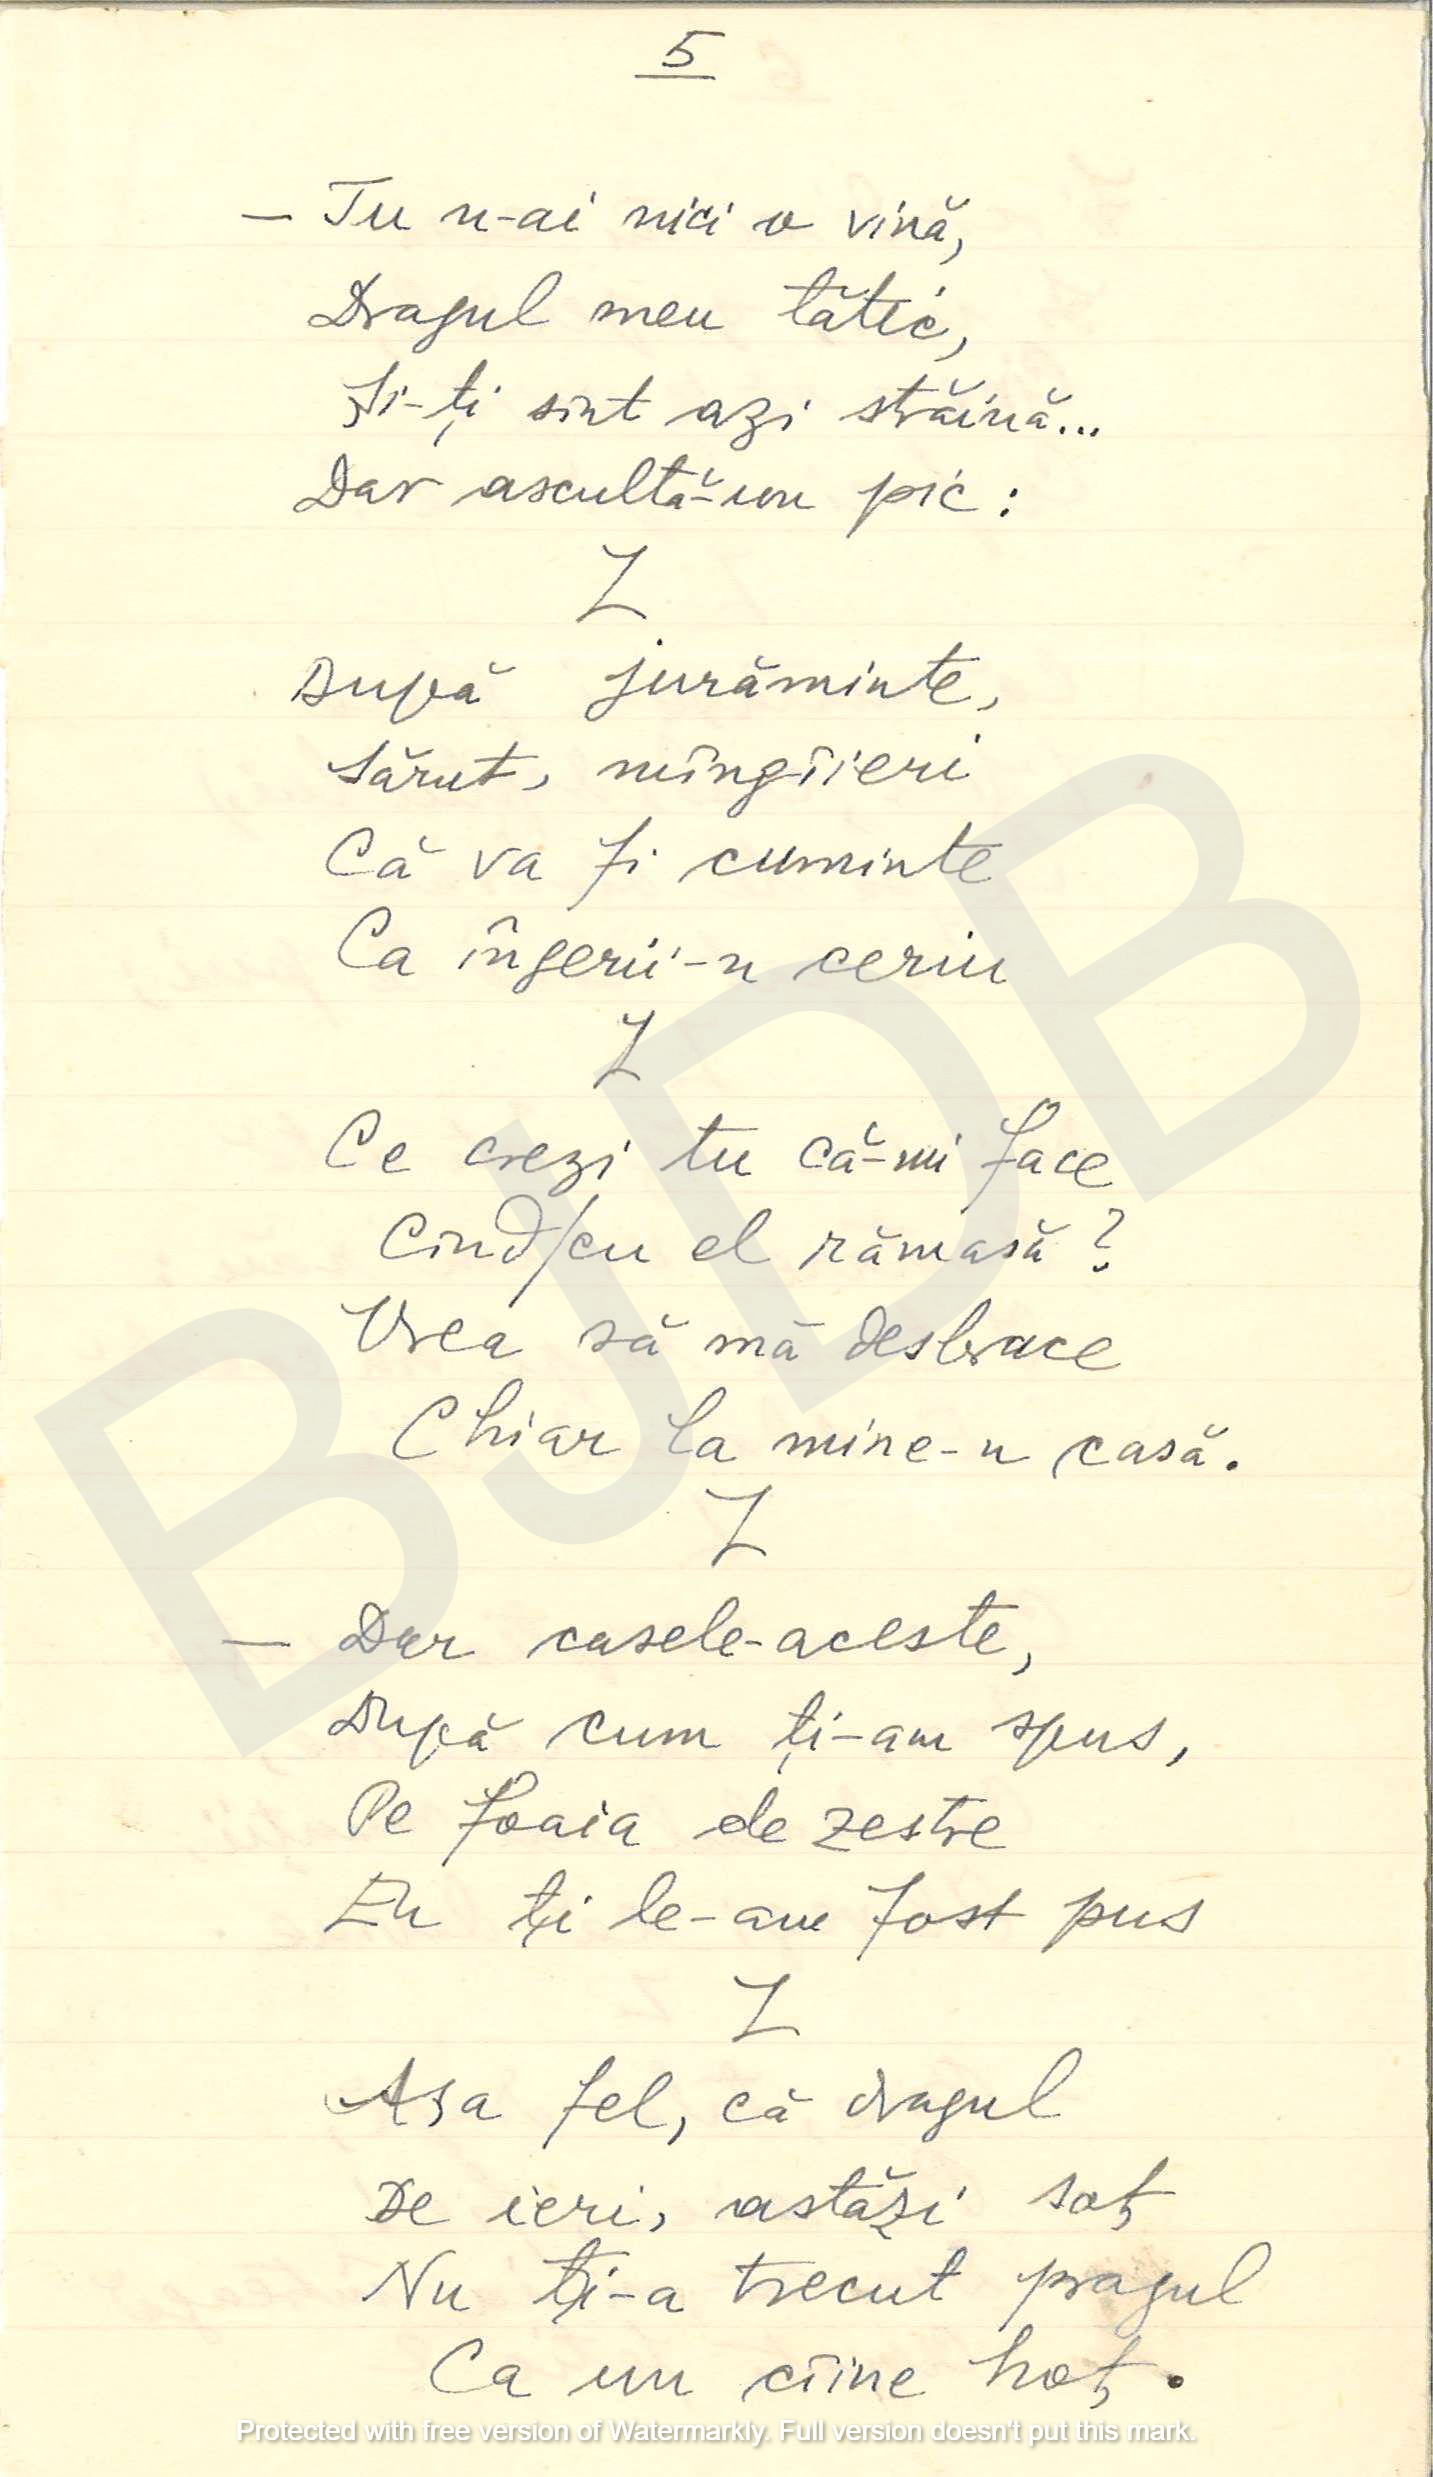 5
— Tu n-ai nici o vină,
Dragul meu tătic,
Și-ți sint azi străină...
Dar ascultă-un pic :
Z
După jurăminte,
Sărut, mîngîieri
Că va fi cuminte
Ca îngerii-n ceriu
Z
Ce crezi tu că-mi face
Cind/cu el rămasă ?
Vrea să mă desbrace
Chiar la mine-n casă.
Z
— Dar casele-aceste,
După cum ți-am spus,
Pe foaia de zestre
Eu ți le-am fost pus
Z
Așa fel, că dragul
De ieri, astăzi soț
Nu ți-a trecut pragul
Ca un cîine hoț.
BJDB
Protected with free version of Watermarkly. Full version doesn't put this mark.